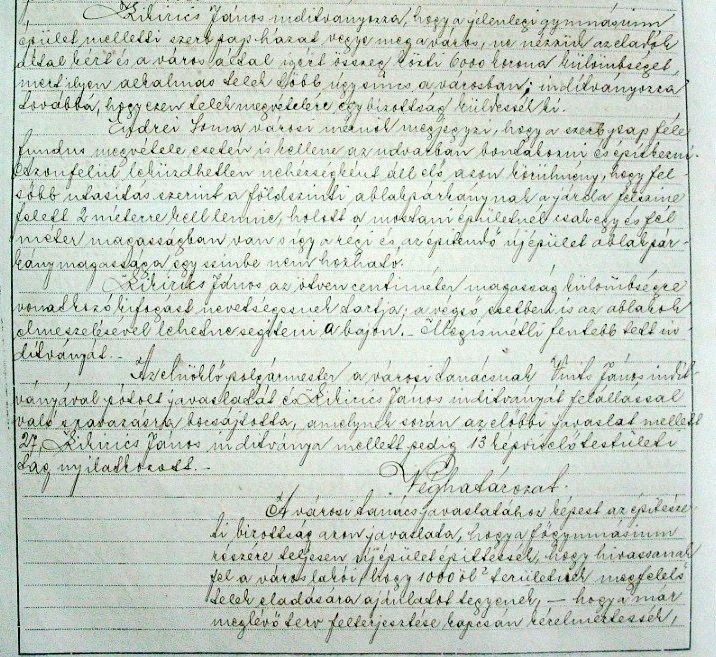 Zikirics János indítványozza, hogy a jelenlegi gymnásium
épület melletti szerbpap házat vegye meg a város, ne nézzük az eladók
által kért és a város által igért összeg közti 6000 korona külömbséget
mert ilyen alkalmas telek több úgysincs a városban; indítványozza
továbbá, hogy ezen telek megvételére egy bizottság küldessék ki.
Endrei Soma városi mérnök megjegyzi, hogy a szerbpap féle
fundus megvétele esetén is kellene az udvarban bontakozni és épitkezni.
Azonfelül leküzdhetlen nehézségként áll elő, azon körülmény, hogy fel-
sőbb utasitás szerint a földszinti ablakpárkánynak a járda felszine
felett 2 méterre kell lennie, holott a mostani épületnél csak egy és fél
méter magasságban van s igy a régi és az épitendő új épület ablakpár-
kánymagassága egy szinbe nem hozható.
Zikirics János az ötven centiméter magasság külömbségre
vonatkozó kifogást nevetségesnek tartja; a végső esetben is az ablakok
elmeszelésével lehetne segíteni a bajon. Megismétli fentebb tett in-
dítványát.
Az elnöklő polgármester a városi tanácsnak János indít-
ványával pótolt javaslatát és Zikirics János indítványát felállással
való szavazásra bocsájtotta, amelynek során az előbbi javaslat mellett
27, Zikirics János indítványa mellett pedig 13 képviselőtestületi
tag nyilatkozott.
Véghatározat.
A városi tanács javaslatához képest az épitésze-
ti bizottság azon javaslata, hogy a főgymnásium
részére teljesen új épület épittessék, hogy hivassanak
fel a város lakói, hogy 1000 öl² területnek megfelelő
telek eladására ajánlatot tegyenek, — hogy a már
meglévő terv felterjesztése kapcsán kérelmeztessék,